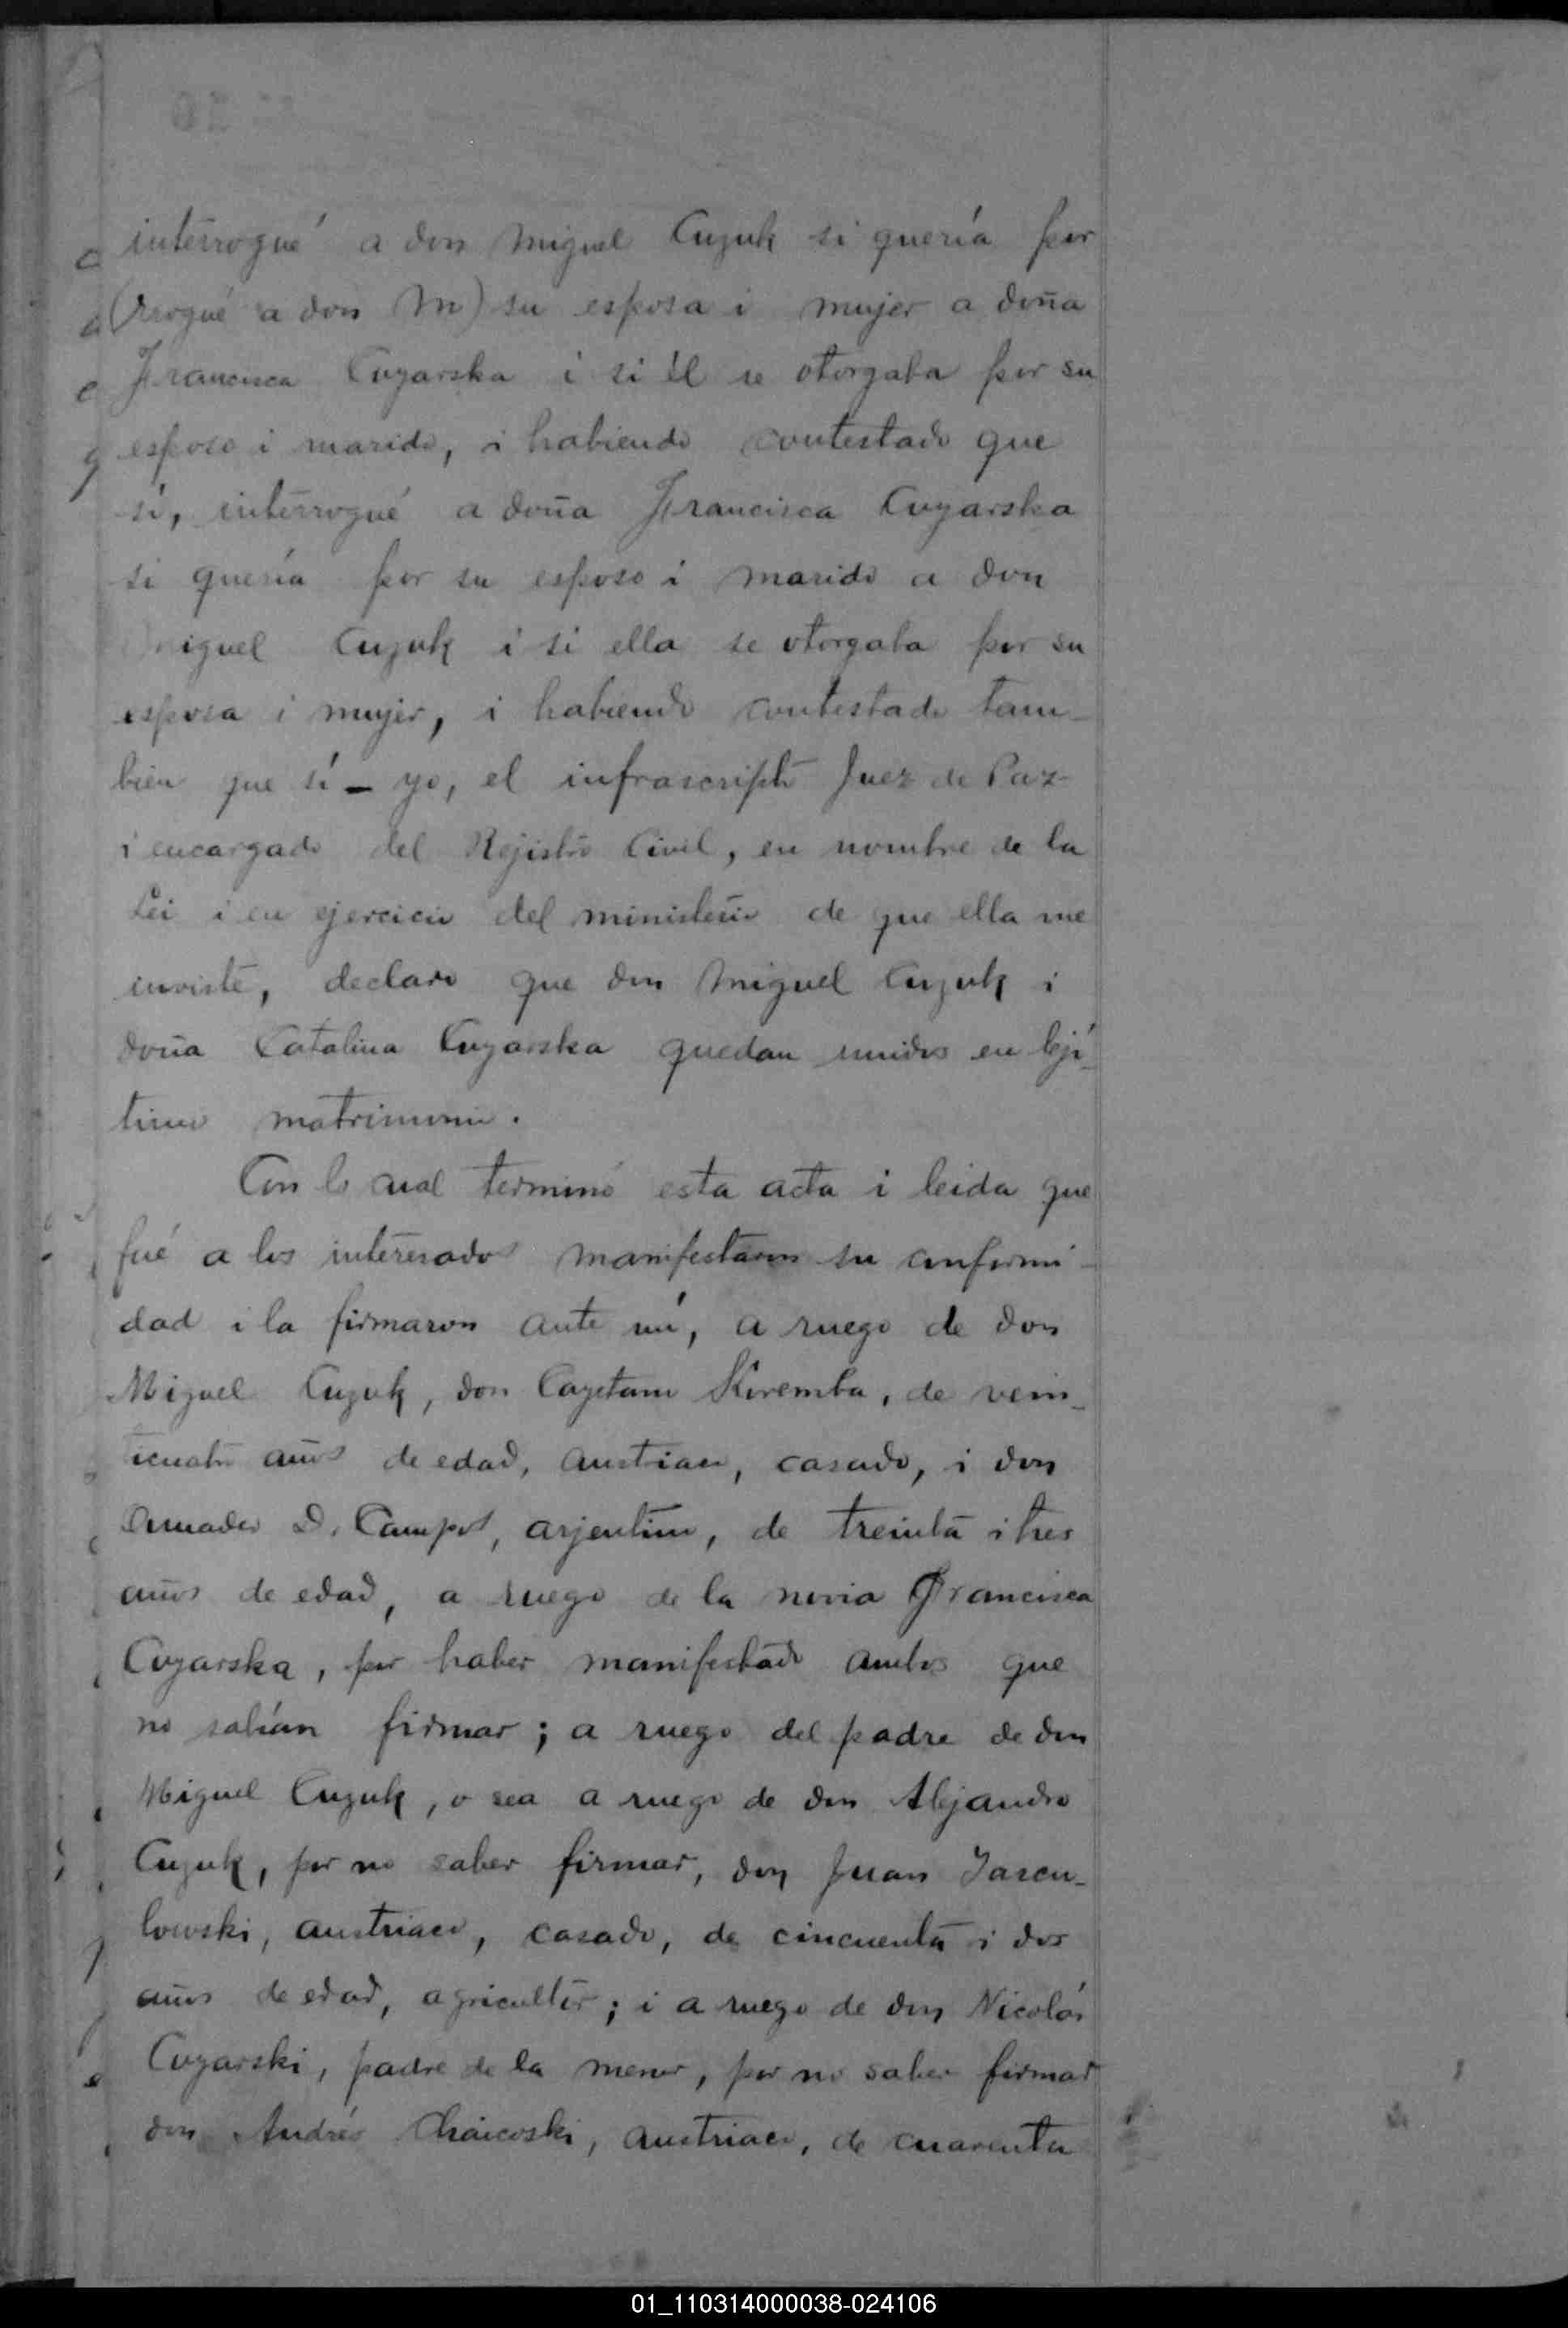 interrogué a don Miguel Cuzuk si quería por
(rrogué a don M) su esposa i mujer a doña
Francisca Cuyarska i si él se otorgaba por su
esposo i marido, i habiendo contestado que
sí, interrogué a doña Francisca Cuyarska
si quería por su esposo i marido a don
Miguel Cuzuk i si ella se otorgaba por su
esposa i mujer, i habiendo contestado tam-
bien que sí - yo, el infrascripto Juez de Paz
i encargado del Rejistro Civil, en nombre de la
Lei i en ejercicio del ministerio de que ella me
inviste, declaro que don Miguel Cuzuk i
doña Catalina Cuyarska quedan unidos en lejí-
timo matrimonio.
Con lo cual terminó esta acta i leida que
fué a los interesados manifestaron su conformi-
dad i la firmaron ante mí, a ruego de don
Miguel Cuzuk, don Cayetano Koremba, de vein-
ticuatro años de edad, austriaco, casado, i don
Amadeo D. Campos, arjentino, de treinta i tres
años de edad, a ruego de la novia Francisca
Cuyarska, por haber manifestado ambos que
no sabían firmar; a ruego del padre de don
Miguel Cuzuk, o sea a ruego de don Alejandro
Cuzuk, por no saber firmar, don Juan Jascu-
lowski, austriaco, casado, de cincuenta i dos
años de edad, agricultor; i a ruego de don Nicolás
Cuyarski, padre de la menor, por no saber firmar
don Andrés Chaicoski, austriaco, de cuarenta
01_110314000038-024106